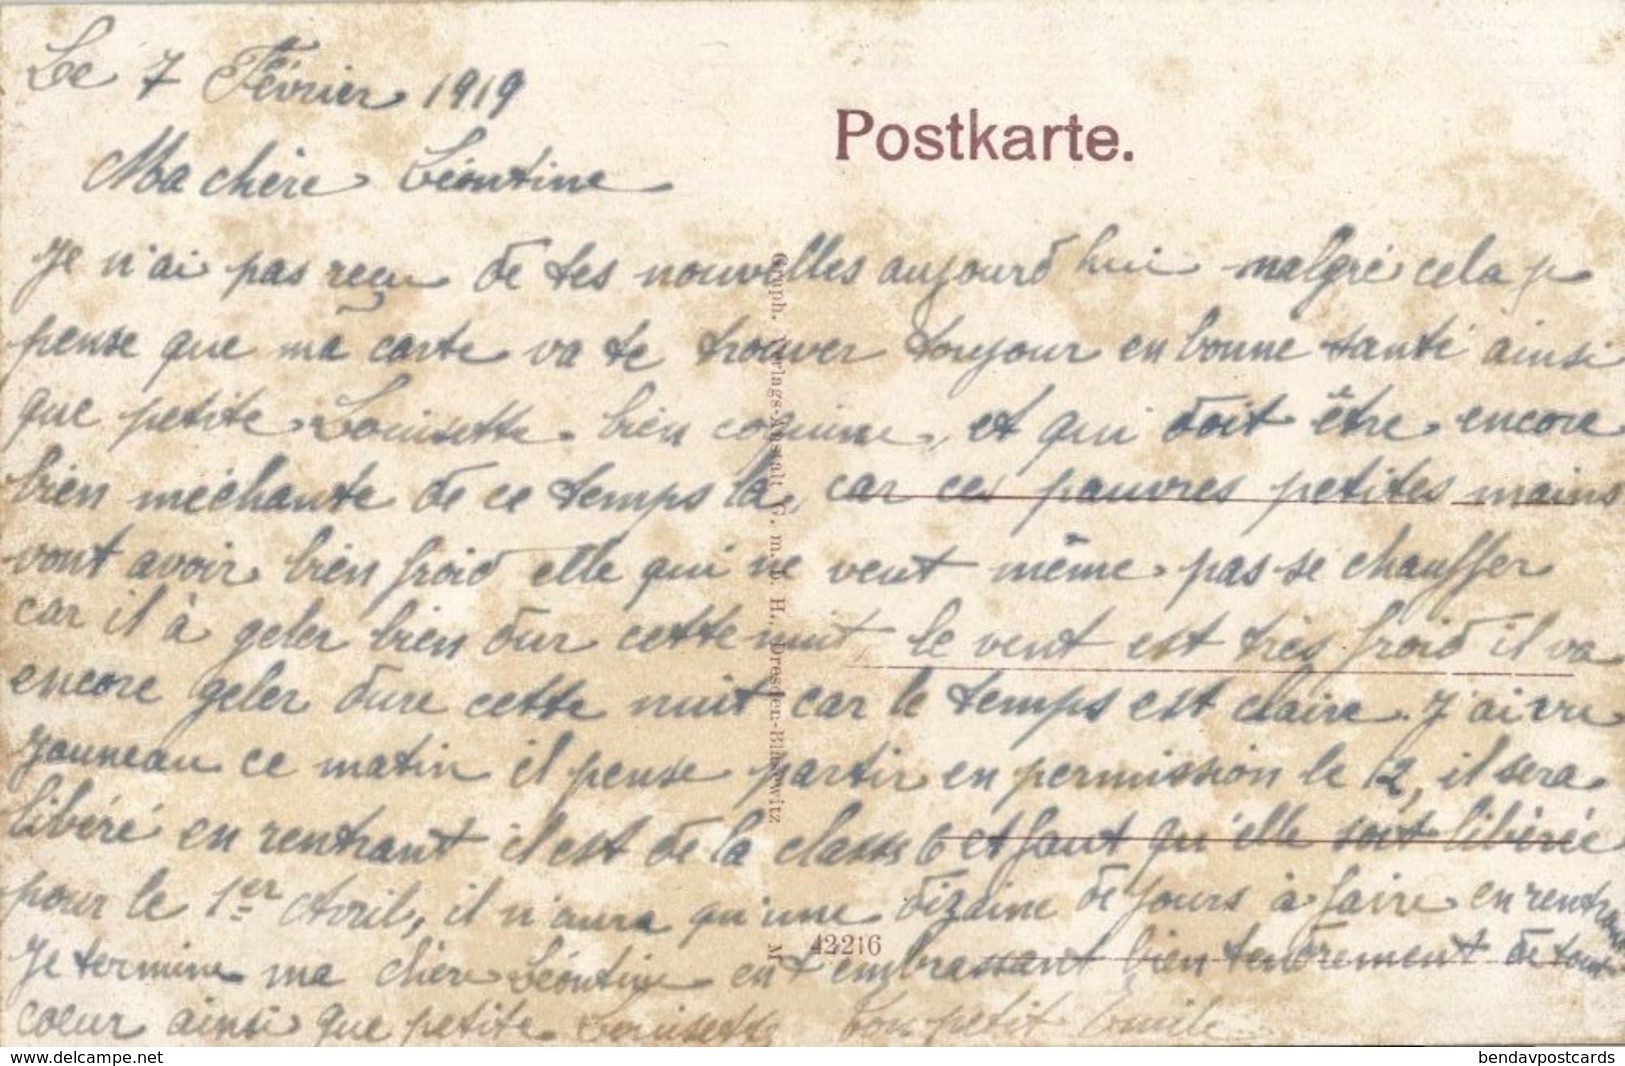 Le 7 Février 1919
Postkarte.
Ma chère Léontine
Je n'ai pas reçu de tes nouvelles aujourd hui malgré cela p
pense que ma carte va te trouver toujour en bonne santé ainsi
que petite Louisette bien coquine, et qui doit être encore
bien méchante de ce temps la, car ces pauvres petites mains
vont avoir bien froid elle qui ne veut même pas se chauffer
car il à geler bien dur cette nuit le vent est très froid il va
encore geler dure cette nuit car le temps est claire. J'ai vu
Jouneau ce matin il pense partir en permission le 12, il sera
libéré en rentrant il est de la classe 6 et faut qu'elle soit libérée
pour le 1er Avril, il n'aura qu'une dizaine de jours à faire en rentrant
Je termine ma chère Léontine en t'embrassant bien tendrement de tout
coeur ainsi que petite Louisette Ton petit Emile
Graph. Verlags-Anstalt G. m. b. H., Dresden-Blasewitz
M 42216
www.delcampe.net
bendavpostcards